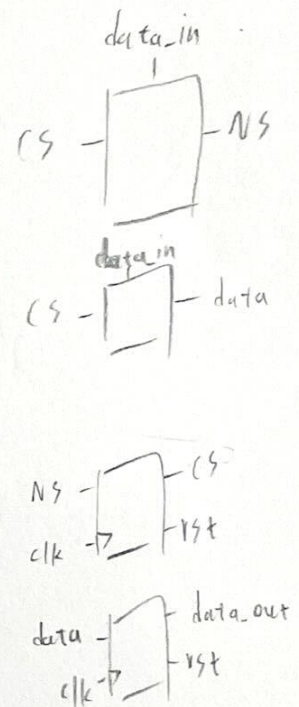 data_in
CS NS
data_in
CS data
NS CS
clk rst
data data_out
clk rst